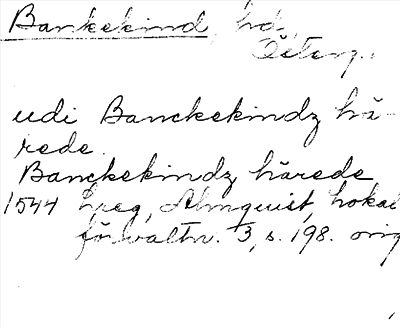 Bankekind, hd,
Österg..
udi Banckekindz hä-
rede.
Banckekindz härede
1544 Lreg, Almquist, Lokal
förvaltn. 3, s. 198. orig